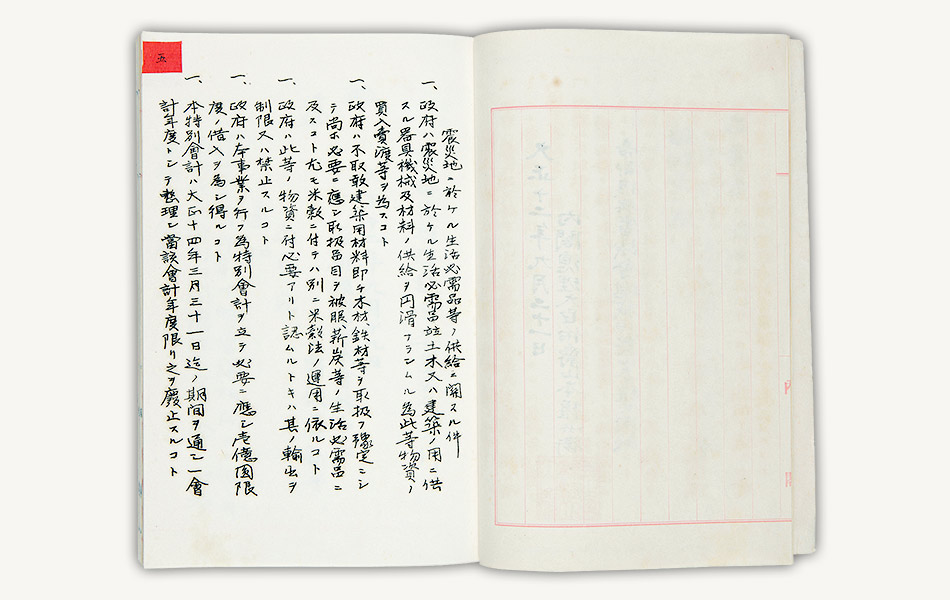 五
震災地ニ於ケル生活必需品等ノ供給ニ関スル件
一、政府ハ震災地ニ於ケル生活必需品並土木又ハ建築ノ用ニ供
スル器具機械及材料ノ供給ヲ円滑ナラシムル為此等物資ノ
買入賣渡等ヲ為スコト
一、政府ハ不取敢建築用材料即チ木材、鉄材等ヲ取扱フ豫定ニシ
テ尚ホ必要ニ應シ取扱品目ヲ被服、薪炭等ノ生活必需品ニ
及スコト尤モ米穀ニ付テハ別ニ米穀法ノ運用ニ依ルコト
一、政府ハ此等ノ物資ニ付必要アリト認ムルトキハ其ノ輸出ヲ
制限又ハ禁止スルコト
一、政府ハ本事業ヲ行フ為特別會計ヲ立テ必要ニ應シ壱億圓限
度ノ借入ヲ為シ得ルコト
一、本特別會計ハ大正十四年三月三十一日迄ノ期间ヲ通シ一會
計年度トシテ整理シ當該會計年度限リ之ヲ廢止スルコト